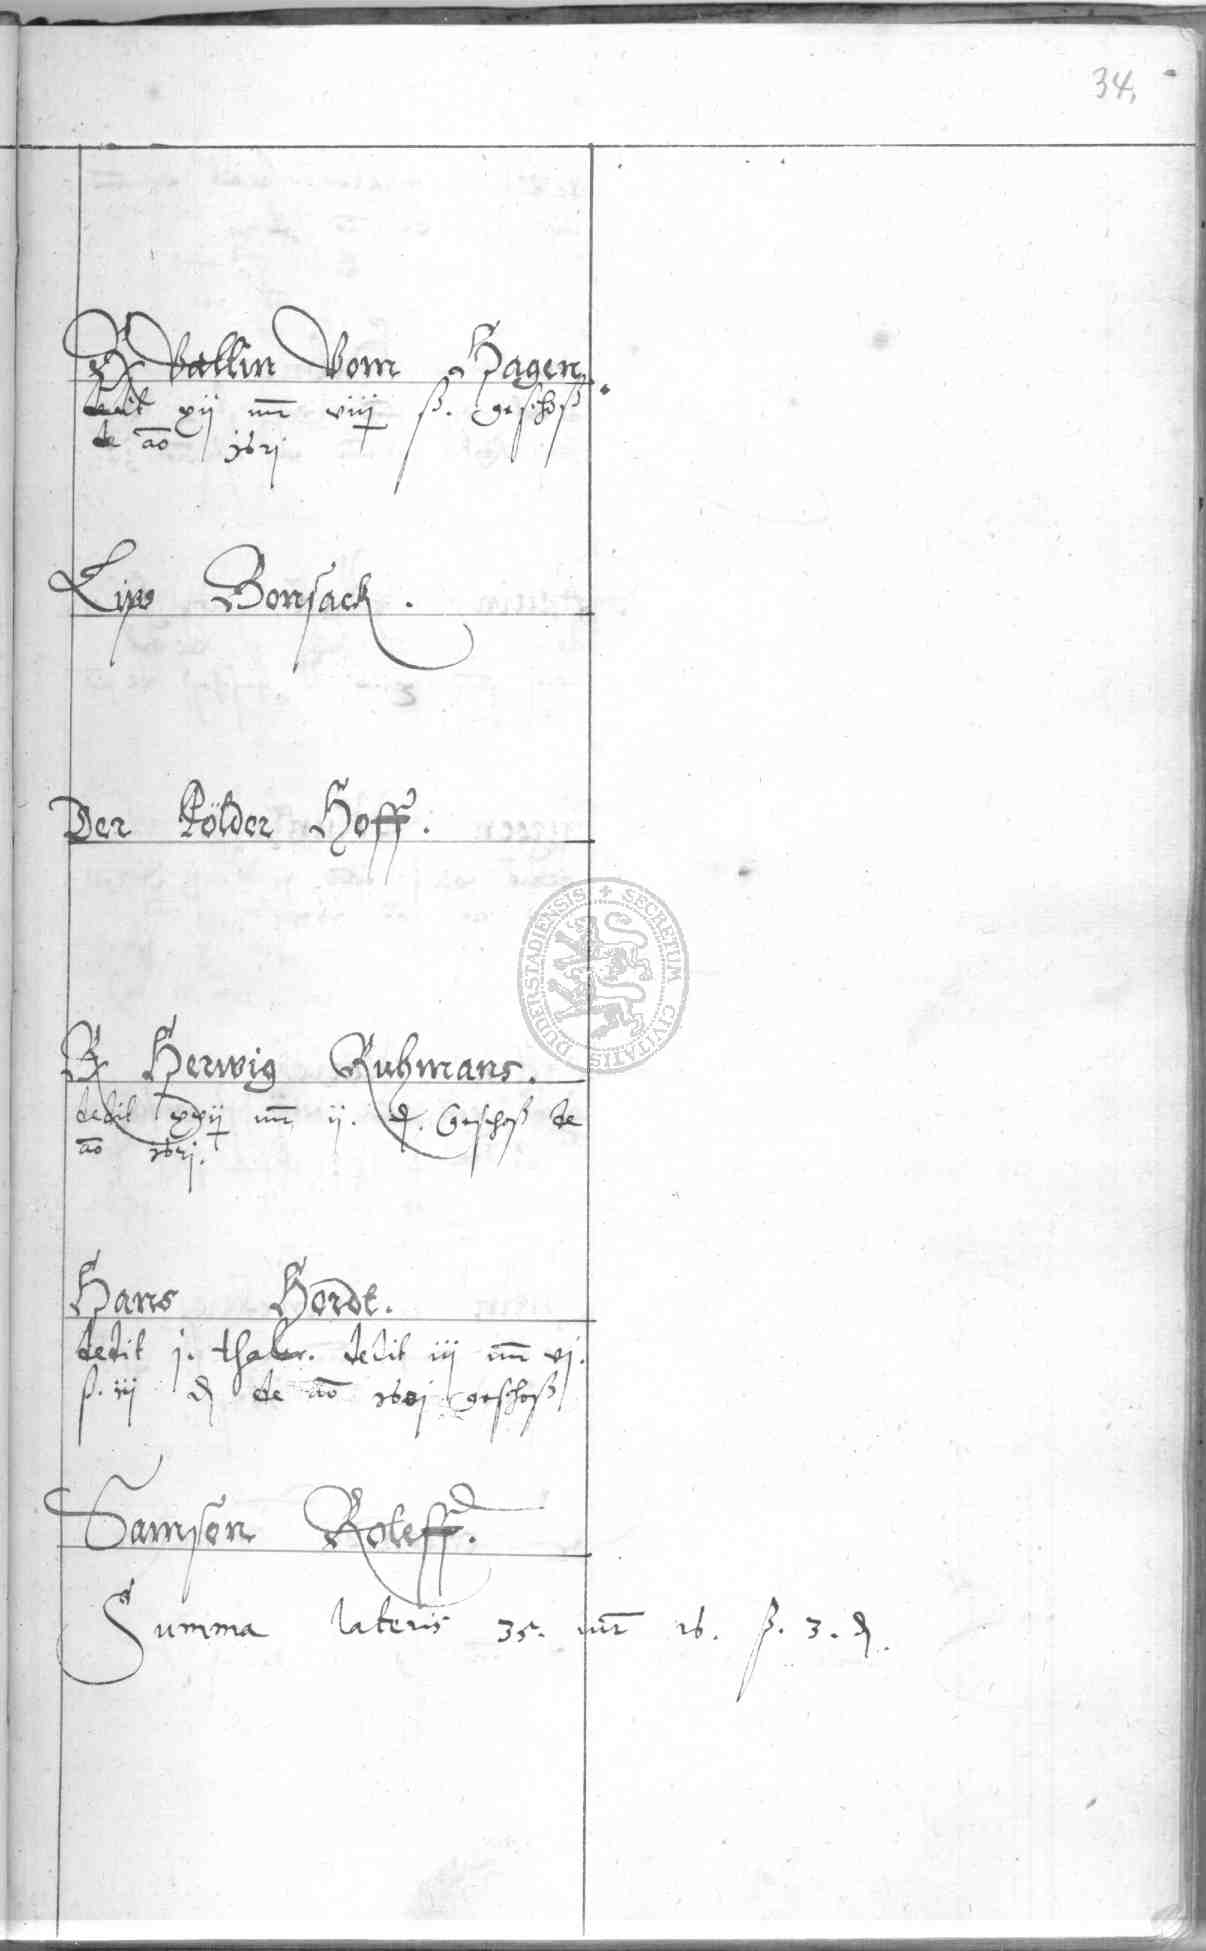 34,
H Vallin Vom Hagen.
dedit xij mr viiij ß. geschoß
de ao 1621
Lips Bonsack.
Der Pölder Hoff.
H Herwig Ruhmans.
dedit xvij mr ij. d. Geschoß de
ao 1621.
Hans Hordt.
dedit j. thaler. dedit iij mr vj.
ß. iij d de ao 1621 geschoß
Samson Roleff.
Summa lateris 35. mr 16. ß. 3. d.
DUDERSTADIENSIS + SECRETUM CIVITATIS